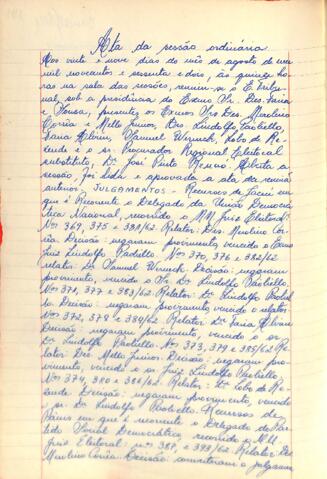 Ata da sessão ordinária
Aos vinte e nove dias do mês de agosto de um mil
novecentos e sessenta e dois, às quinze ho-
ras na sala das sessões, reuniu-se o E. Tribu-
nal, sob a presidência do Exmo Sr. Des. Faria
e Sousa, presentes os Exmos Srs Des. Merolino
Corrêa e Mello Junior, Drs Lindolfo Paoliello,
Faria Alvim, Samuel Werneck, Lobo de Re-
zende e o sr. Procurador Regional Eleitoral
substituto, Dr. José Pinto Renno. Aberta a
sessão, foi lida e aprovada a ata da reunião
anterior. JULGAMENTOS - Recursos de Jacuí em
que é Recorrente o Delegado da União Democrá-
tica Nacional, recorrido o MM Juiz Eleitoral:
Nos 369, 375 e 381/62: Relator: Des. Merolino
Corrêa Decisão: negaram provimento, vencido o Exmo
Juiz Lindolfo Paoliello. Nos 370, 376 e 382/62
relator: Dr Samuel Werneck Decisão: negaram
provimento, vencido o Sr Lindolfo Paoliello.
Nos 371, 377 e 383/62. Relator: Dr Lindolfo Paoliel-
lo. Decisão: negaram provimento, vencido o relator.
Nos 372, 378 e 384/62. Relator: Dr Faria Alvim
Decisão: negaram provimento, vencido o sr
Dr Lindolfo Paoliello Nos 373, 379 e 385/62. Re-
lator: Des. Mello Junior: Decisão: negaram pro-
vimento, vencido o sr Juiz Lindolfo Paoliello.
Nos 374, 380 e 386/62. Relator: Dr Lobo de Re-
zende Decisão: negaram provimento, vencido
o sr Dr Lindolfo Paoliello. Recursos de
em que é recorrente o Delegado do Par-
tido Social Democrático, recorrido o M.M.
Juiz Eleitoral: nos 387, e 393/62. Relator Des
Merolino Corrêa. Decisão: converteram o julgamen